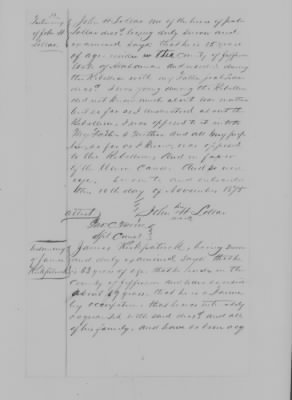 Testimony
of John H
Lollar
John H Lollar one of the heirs of Jub
Lollar decd being duly sworn and
examined says that he is 25 years
of age reside in the County of Jefferson
State of Alabama and resided during
the Rebellion with my Father
decd. I was young during the Rebellion
did not know much about war matters
but so far as I understood about the
Rebellion, I was opposed to it
My Father & Mother and all
so far as I know, was opposed
to the Rebellion, And in favor
of the Union Cause. And so on
Sworn to and subscribed
this 10th day of November 1875
Attest
John his H Lollar
mark
Spl Comr
Testimony
of James
Kirkpatrick
James Kirkpatrick, being sworn
and duly examined says that he
is 63 years of age that he resides in the
County of Jefferson and have resided
about 49 years, that he is a Farmer
by occupation, that he was intimately
acquainted with said decd and all
of his family, and have so been acq